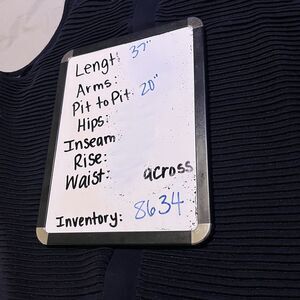 Lengt: 37"
Arms:
Pit to Pit 20"
Hips:
Inseam
Rise:
Waist: across
Inventory: 8634